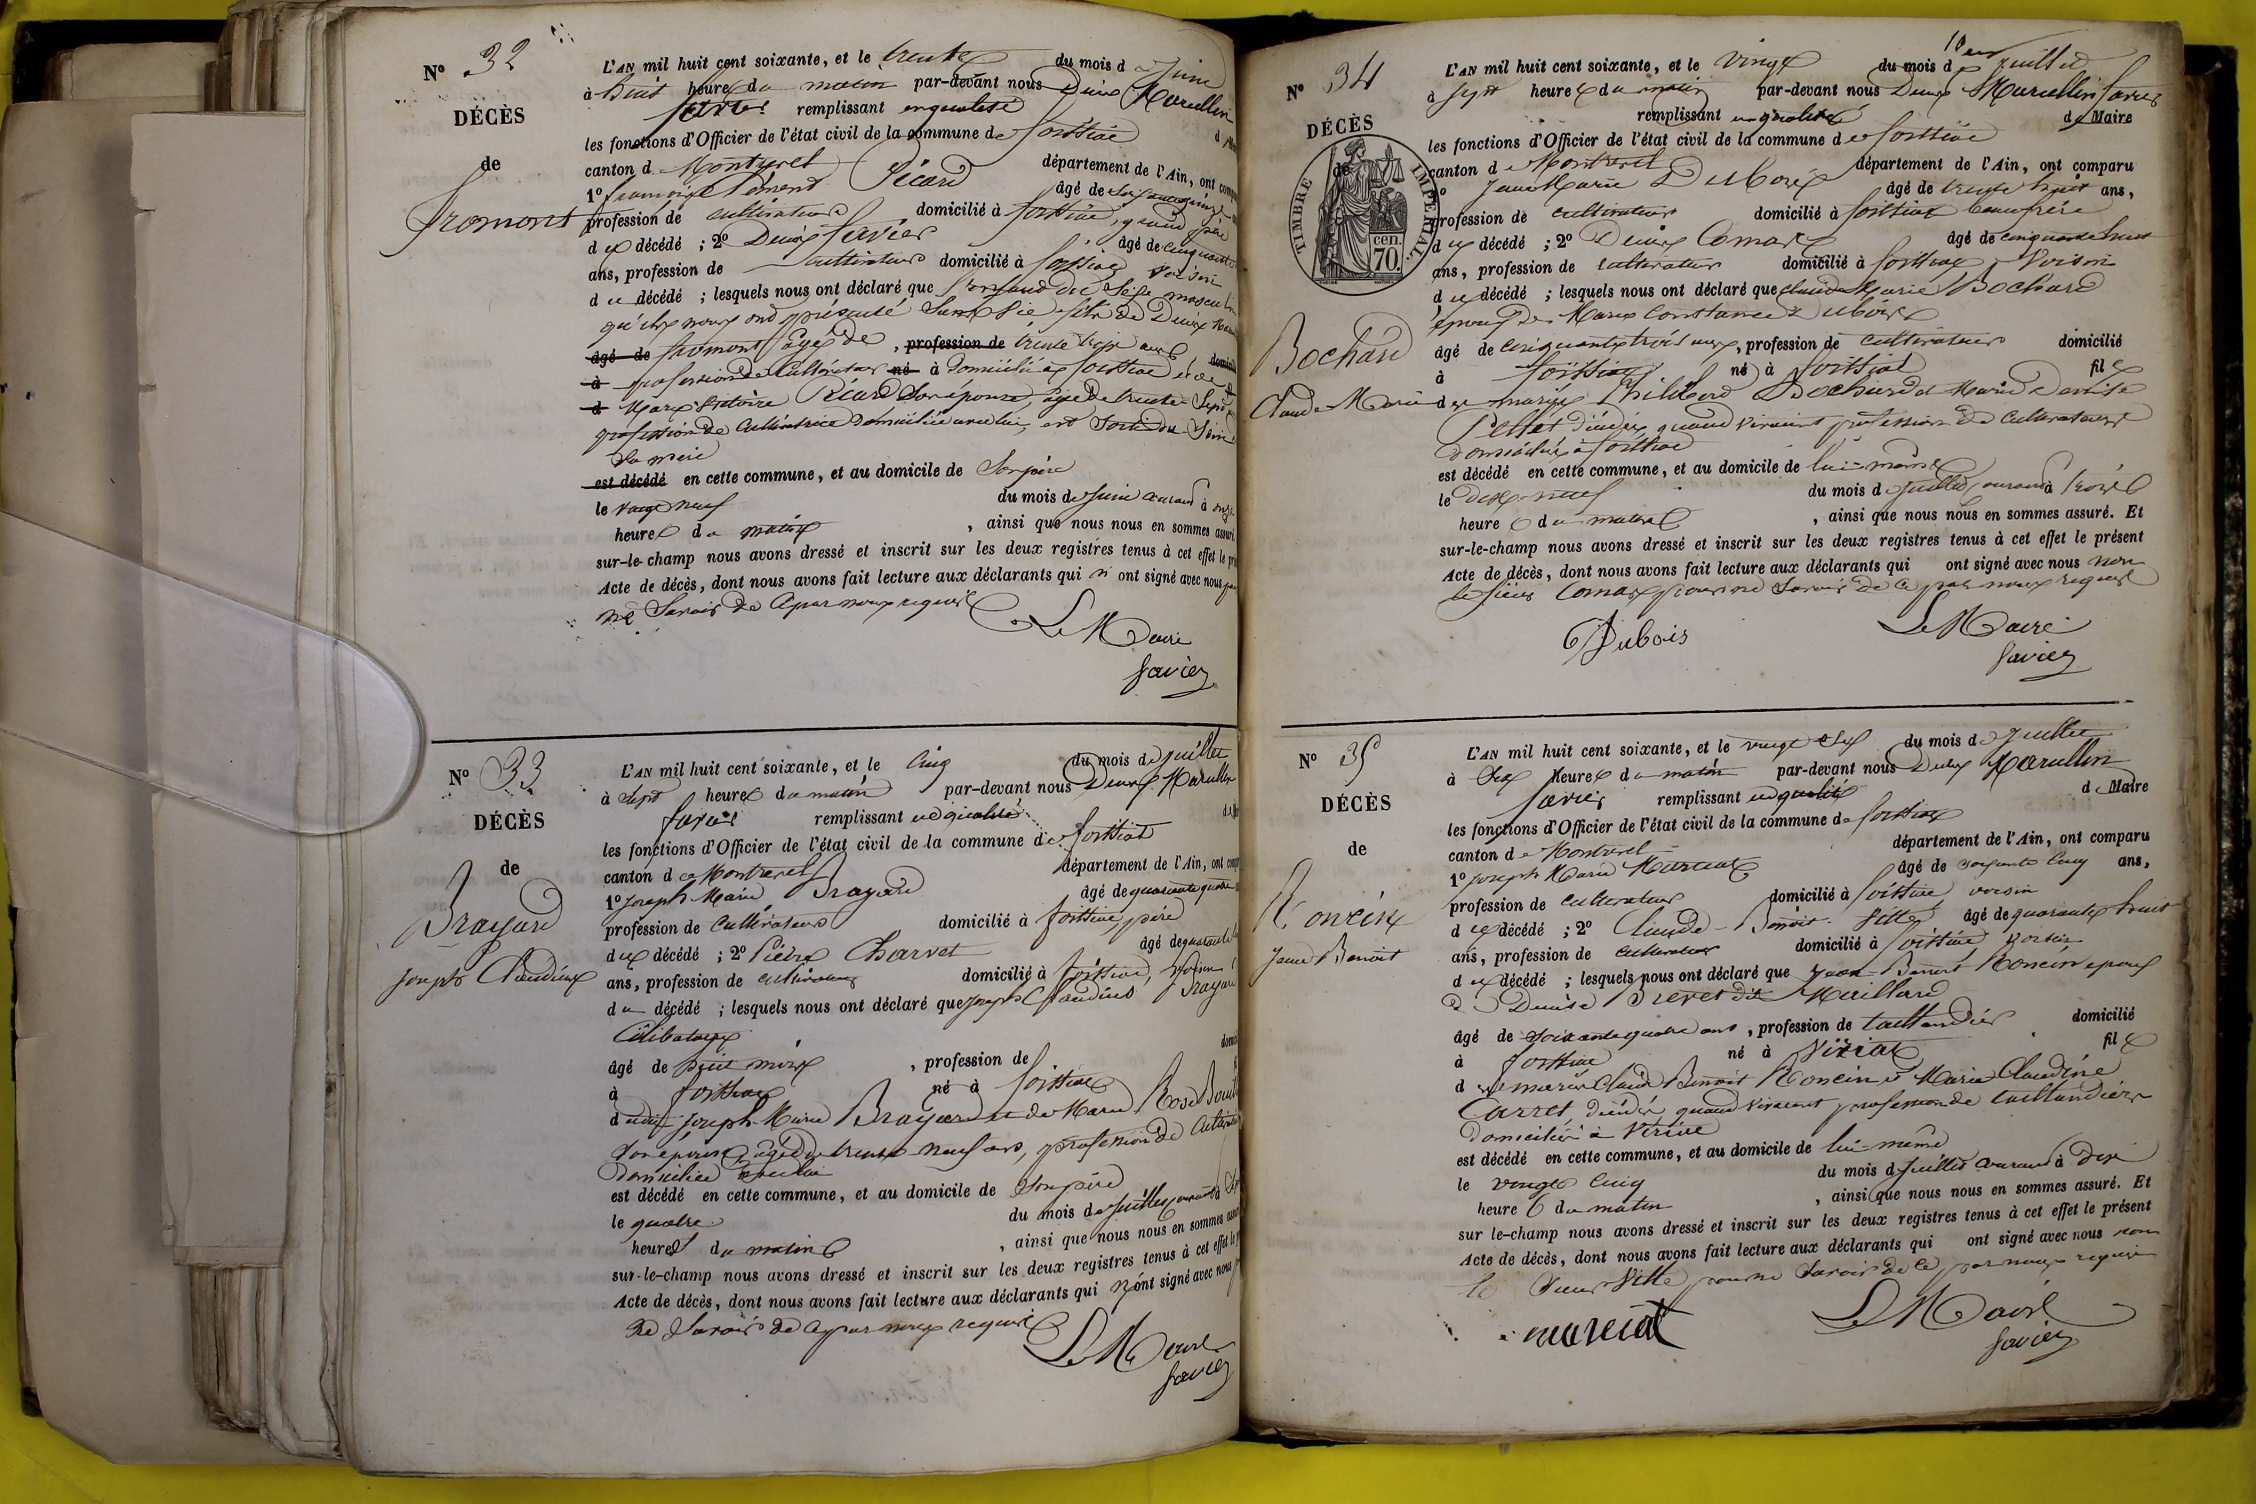 N° 32
DÉCÈS
de
Fromont
L'AN mil huit cent soixante, et le trente du mois de Juin
à huit heures du matin par-devant nous Denis Marcellin
Favier remplissant en qualité
les fonctions d'Officier de l'état civil de la commune de foissiat
canton de Montrevel département de l'Ain, ont
1° françois Clément Picard âgé de
profession de cultivateur domicilié à foissiat, grand père
du décédé ; 2° Denis favier âgé de cinquante
ans, profession de cultivateur domicilié à foissiat voisin
du décédé ; lesquels nous ont déclaré que l'enfant du sexe masculin
qu'ils nous ont présenté sans vie fils de Denis
âgé de fromont âgé de , profession de trente trois ans
à profession de Cultivateur né à domicilié à foissiat et de
d Marie Victoire Picard son épouse, âgée de trente sept
profession de Cultivatrice domiciliée avec lui, est sorti du sein
de sa mère
est décédé en cette commune, et au domicile de son père
le vingt neuf du mois de Juin courant à onze
heures du matin , ainsi que nous nous en sommes assuré
sur-le-champ nous avons dressé et inscrit sur les deux registres tenus à cet effet le
Acte de décès, dont nous avons fait lecture aux déclarants qui n'ont signé avec nous pour
ne savoir de ce par nous requis
Le Maire
favier
N° 33
DÉCÈS
de
Brayard
Joseph Claudius
L'AN mil huit cent soixante, et le cinq du mois de Juillet
à sept heures du matin par-devant nous Denis Marcellin
favier remplissant en qualité
les fonctions d'Officier de l'état civil de la commune de foissiat
canton de Montrevel département de l'Ain, ont
1° Joseph Marie Brayard âgé de quarante quatre
profession de cultivateur domicilié à foissiat, père
du décédé ; 2° Pierre Charvet âgé de quarante
ans, profession de cultivateur domicilié à foissiat, voisin
du décédé ; lesquels nous ont déclaré que Joseph Claudius Brayard
Célibataire
âgé de huit mois , profession de
à foissiat né à foissiat
dudit Joseph Marie Brayard et de Marie Rose
son épouse âgée de trente neuf ans, profession de
domiciliée avec lui
est décédé en cette commune, et au domicile de son père
le quatre du mois de Juillet courant à
heures du matin , ainsi que nous nous en sommes
sur-le-champ nous avons dressé et inscrit sur les deux registres tenus à cet effet le
Acte de décès, dont nous avons fait lecture aux déclarants qui n'ont signé avec nous
ne savoir de ce par nous requis
Le Maire
favier
N° 34
DÉCÈS
de
TIMBRE IMPÉRIAL
70 cen.
Bochard
Claude Marie
L'AN mil huit cent soixante, et le vingt du mois de Juillet
à sept heures du matin par-devant nous Denis Marcellin favier
remplissant en qualité de Maire
les fonctions d'Officier de l'état civil de la commune de foissiat
canton de Montrevel département de l'Ain, ont comparu
1° Jean Marie Dubois âgé de trente huit ans,
profession de cultivateur domicilié à foissiat beau frère
du décédé ; 2° Denis Comas âgé de cinquante huit
ans, profession de cultivateur domicilié à foissiat, voisin
du décédé ; lesquels nous ont déclaré que Claude Marie Bochard
époux de Marie Constance Dubois
âgé de cinquante trois ans, profession de cultivateur domicilié
à foissiat né à foissiat fils
des mariés Philibert Bochard et Marie Denise
Pelletdécédés, quand vivaient profession de cultivateurs
domiciliés à foissiat
est décédé en cette commune, et au domicile de lui-même
le dix-neuf du mois de Juillet courant à trois
heures du matin , ainsi que nous nous en sommes assuré. Et
sur-le-champ nous avons dressé et inscrit sur les deux registres tenus à cet effet le présent
Acte de décès, dont nous avons fait lecture aux déclarants qui ont signé avec nous non
le sieur Comas pour ne savoir de ce par nous requis
Dubois
Le Maire
favier
N° 35
DÉCÈS
de
Roncin
Jean Benoit
L'AN mil huit cent soixante, et le vingt six du mois de Juillet
à six heures du matin par-devant nous Denis Marcellin
favier remplissant en qualité de Maire
les fonctions d'Officier de l'état civil de la commune de foissiat
canton de Montrevel département de l'Ain, ont comparu
1° Joseph Marie Marciat âgé de soixante cinq ans,
profession de cultivateur domicilié à foissiat voisin
du décédé ; 2° Claude-Benoit Pitte âgé de quarante huit
ans, profession de cultivateur domicilié à foissiat voisin
du décédé ; lesquels nous ont déclaré que Jean-Benoit Roncin époux
de Denise Brevet dit Maillard
âgé de soixante quatre ans, profession de taillandier domicilié
à foissiat né à Viriat fils
des mariés Claude Benoit Roncin et Marie Claudine
Carret, décédés quand vivaient profession de taillandiers
domiciliés à Viriat
est décédé en cette commune, et au domicile de lui-même
le vingt cinq du mois de Juillet courant à dix
heures du matin , ainsi que nous nous en sommes assuré. Et
sur le-champ nous avons dressé et inscrit sur les deux registres tenus à cet effet le présent
Acte de décès, dont nous avons fait lecture aux déclarants qui ont signé avec nous non
le sieur Pitte pour ne savoir de ce par nous requis
marciat
Le Maire
favier